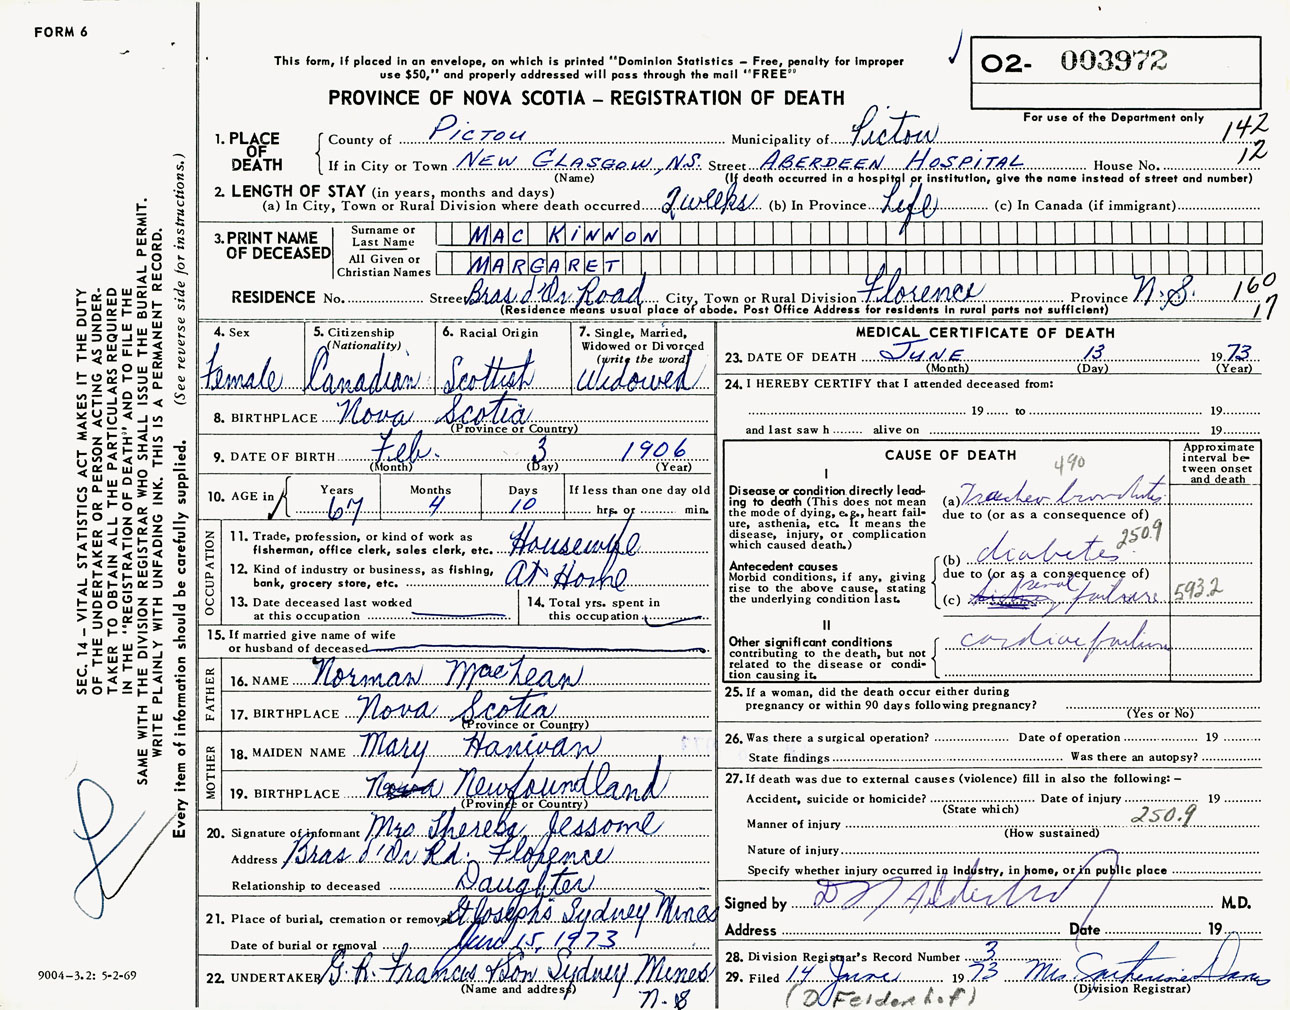 FORM 6
This form, if placed in an envelope, on which is printed "Dominion Statistics – Free, penalty for improper
use $50," and properly addressed will pass through the mail "FREE"
O2- 003972
For use of the Department only
PROVINCE OF NOVA SCOTIA – REGISTRATION OF DEATH
142
12
1. PLACE OF DEATH County of Pictou Municipality of Pictou
If in City or Town New Glasgow, N.S. Street Aberdeen Hospital House No.
(Name) (If death occurred in a hospital or institution, give the name instead of street and number)
2. LENGTH OF STAY (in years, months and days)
(a) In City, Town or Rural Division where death occurred 2 weeks (b) In Province Life (c) In Canada (if immigrant)
3. PRINT NAME OF DECEASED
Surname or Last Name MAC KINNON
All Given or Christian Names MARGARET
RESIDENCE No. Street Bras d'Or Road City, Town or Rural Division Florence Province N.S. 160
17
(Residence means usual place of abode. Post Office Address for residents in rural parts not sufficient)
4. Sex Female
5. Citizenship (Nationality) Canadian
6. Racial Origin Scottish
7. Single, Married, Widowed or Divorced (write the word) Widowed
8. BIRTHPLACE Nova Scotia
(Province or Country)
9. DATE OF BIRTH Feb. 3 1906
(Month) (Day) (Year)
10. AGE in Years 67 Months 4 Days 10 If less than one day old hrs. or min.
OCCUPATION
11. Trade, profession, or kind of work as
fisherman, office clerk, sales clerk, etc. Housewife
12. Kind of industry or business, as fishing,
bank, grocery store, etc. At Home
13. Date deceased last worked
at this occupation
14. Total yrs. spent in
this occupation
15. If married give name of wife
or husband of deceased
FATHER
16. NAME Norman MacLean
17. BIRTHPLACE Nova Scotia
(Province or Country)
MOTHER
18. MAIDEN NAME Mary Hanivan
19. BIRTHPLACE Newfoundland
(Province or Country)
20. Signature of informant Mrs Theresa Jessome
Address Bras d'Or Rd. Florence
Relationship to deceased Daughter
21. Place of burial, cremation or removal St Joseph's Sydney Mines
Date of burial or removal June 15, 1973
22. UNDERTAKER G.R. Francis & Son Sydney Mines
(Name and address) N.S
MEDICAL CERTIFICATE OF DEATH
23. DATE OF DEATH June 13 1973
(Month) (Day) (Year)
24. I HEREBY CERTIFY that I attended deceased from:
19 to 19
and last saw h alive on 19
CAUSE OF DEATH
Approximate interval between onset and death
490
I
Disease or condition directly leading to death (This does not mean
the mode of dying, e.g., heart failure, asthenia, etc. It means the
disease, injury, or complication
which caused death.)
(a) Tracheo bronchitis
due to (or as a consequence of)
250.9
(b) diabetes
due to (or as a consequence of)
Antecedent causes
Morbid conditions, if any, giving
rise to the above cause, stating
the underlying condition last.
(c) renal failure 593.2
II
Other significant conditions
contributing to the death, but not
related to the disease or condition causing it.
cardiac failure
25. If a woman, did the death occur either during
pregnancy or within 90 days following pregnancy?
(Yes or No)
26. Was there a surgical operation? Date of operation 19
State findings Was there an autopsy?
27. If death was due to external causes (violence) fill in also the following: –
Accident, suicide or homicide? Date of injury 19
(State which)
Manner of injury 250.9
(How sustained)
Nature of injury
Specify whether injury occurred in industry, in home, or in public place
Signed by M.D.
Address Date 19
28. Division Registrar's Record Number 3
29. Filed 14 June 1973 Mrs.
(Division Registrar)
(D Feldenhof)
SEC. 14 – VITAL STATISTICS ACT MAKES IT THE DUTY
OF THE UNDERTAKER OR PERSON ACTING AS UNDER-
TAKER TO OBTAIN ALL THE PARTICULARS REQUIRED
IN THE "REGISTRATION OF DEATH" AND TO FILE THE
SAME WITH THE DIVISION REGISTRAR WHO SHALL ISSUE THE BURIAL PERMIT.
WRITE PLAINLY WITH UNFADING INK. THIS IS A PERMANENT RECORD.
Every item of information should be carefully supplied. (See reverse side for instructions.)
9004-3.2: 5-2-69